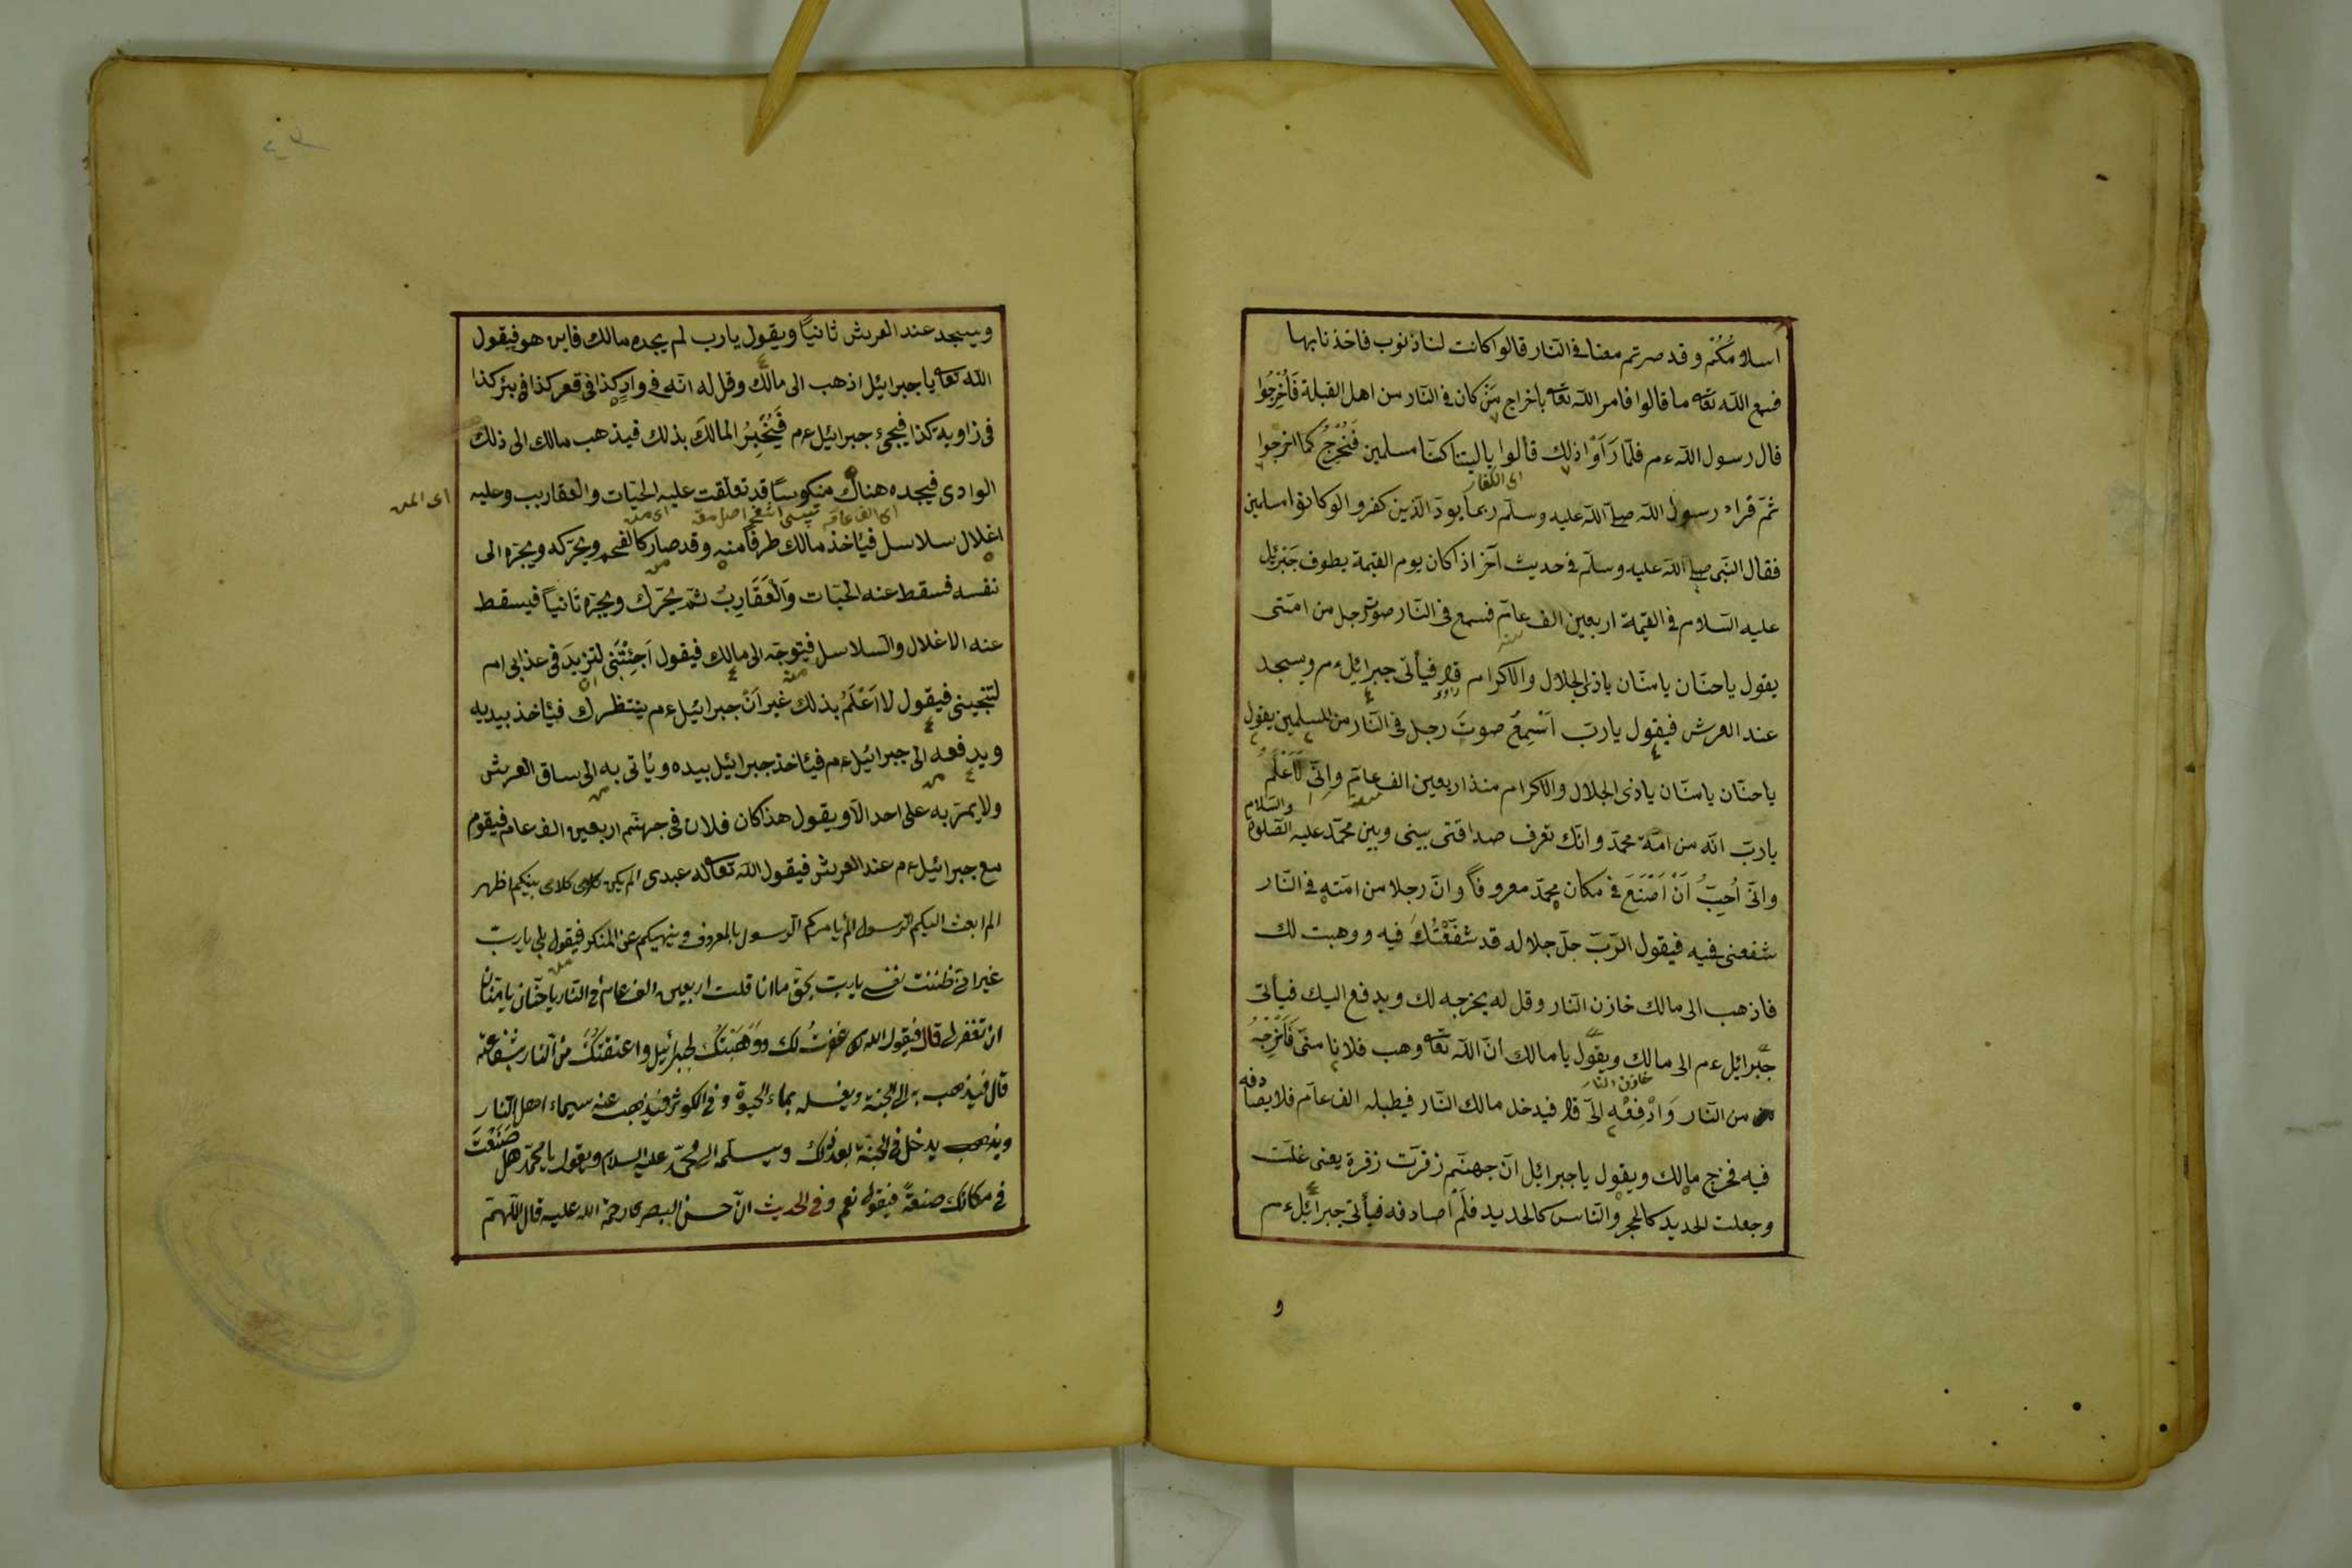 اسلامُكُم وقد صرتم معنا فى النار قالوا كانت لنا ذنوب فاخذنا بها
فسمع الله تعا ما قالوا فامر الله تعا باخراج مَنْ كان فى النار من اهل القبلة فَاُخْرِجُوا
قال رسول الله عم فلمّا رَاَوْا ذلك قالوا ياليتنا كنّا مسلمين فَنُخْرَجُ كما اخرجوا
اى الكفار
ثمّ قراء رسول الله صلى الله عليه وسلّم ربما يودّ الذين كفروا لو كانوا مسلمين
فقال النّبى صلى الله عليه وسلّم فى حديث آخر اذا كان يوم القيمة يطوف جَبْرئِل
عليه السّلام فى القيمة اربعين الف عام فسمع فى النّار صوت رجل من امّتى
سنه
يقول يا حنّان يا منّان يا ذى الجلال والاكرام قال فيأتى جبرائيل عم ويسجد
راوى
عند العرش فيقول يا ربّ اَسْمِعُ صوتَ رجل فى النّار من المسلمين يقول
يا حنّان يا منّان يا ذى الجلال والاكرام منذ اربعين الف عام وانّى لَاَعْلَمُ
سنه
والسّلام
يا ربّ انّه من امّة محمّد وانّك تعرف صداقتى بينى وبين محمّد عليه الصّلوة
وانّى اُحِبُّ اَنْ اَصْنَعَ فى مكان محمّد معروفاً وانّ رجلا من امّته فى النّار
شفعنى فيه فيقول الرّبّ جلّ جلاله قد شَفَّعْتُكَ فيه ووهبت لك
فاذهب الى مالك خازن النّار وقل له يخرجه لك ويدفع اليك فيأتى
جبرائيل عم الى مالك ويقول يا مالك انّ الله تعا وهب فلانا منّى فَاَخْرِجْهُ
خازن النار
دفه
من النّار وَادْفِعْهِ الىّ قال فيدخل مالك النّار فيطلبه الف عام فلا يصا
فيه فخرج مالك ويقول يا جبرائيل انّ جهنّم زفرت زفرة يعنى غلت
وجعلت الحديد كالحجر والنّاس كالحديد فَلَمْ اُصادفه فيأتى جبرائيل عم
و
ويسجد عند العرش ثانياً ويقول يا رب لم يجده مالك فاين هو فيقول
الله تعا يا جبرائيل اذهب الى مالك وقل له انّه فى وادٍ كذا فى قعر كذا فى بئر كذا
فى زاوية كذا فيجئ جبرائيل عم فَيُخْبِرُ المالكَ بذلك فيذهب مالك الى ذلك
الوادى فيجده هناك منكوساً قد تعلّقت عليه الحيّات والعقاريب وعليه
اغلال سلاسل فيأخذ مالك طرفاً منه وقد صار كالفحم ويحرّكه ويجرّه الى
نفسه فسقط عنه الحيّات وَالْعَقَارِبُ ثمّ يحرّك ويجرّه ثانياً فيسقط
عنه الاغلال والسّلاسل فيتوجّه الى مالك فيقول اَجِئْتَنى لتزيدَ فى عذابى ام
لتنجينى فيقول لا اَعْلَمُ بذلك غير اَنَّ جبرائيل عم ينتظرك فيأخذ بيديه
ويدفعه الى جبرائيل عم فيأخذ جبرائيل بيده ويأتى به الى ساق العرش
ولا يمرّ به على احد الّا ويقول هذا كان فلان فى جهنّم اربعين الف عام فيقوم
مع جبرائيل عم عند العرش فيقول الله تعا له عبدى الم يكن كلامى بينكم اظهر
الم ابعث اليكم الرّسول الم يأمركم الرّسول بالمعروف وينهيكم عن المنكر فيقول بلى يا ربّ
غير انّى ظلمت نفسى يا ربّ بحقّ ما انا قلت اربعين الف عام فى النّار يا حنّان يا منّان
ان تغفر لى قال فيقول الله غفرتُ لك ووَهَبْتُكَ لجبرئيل واعتقتكَ من النّار بشفاعته
قال فيذهب به الى الجنّة ويغسله بماء الحيوة وفى الكوثر فيذهب عنه سيماء اهل النّار
ويدخل فى الجنّة بعد ذلك ويسلّمه الى محمّد عليه السلام ويقول يا محمّد هل صَنَعْتَ
فى مكانك صنعةً فيقول نعم وفى الحديث انّ حسن البصرى رحمة الله عليه قال اللّهمّ